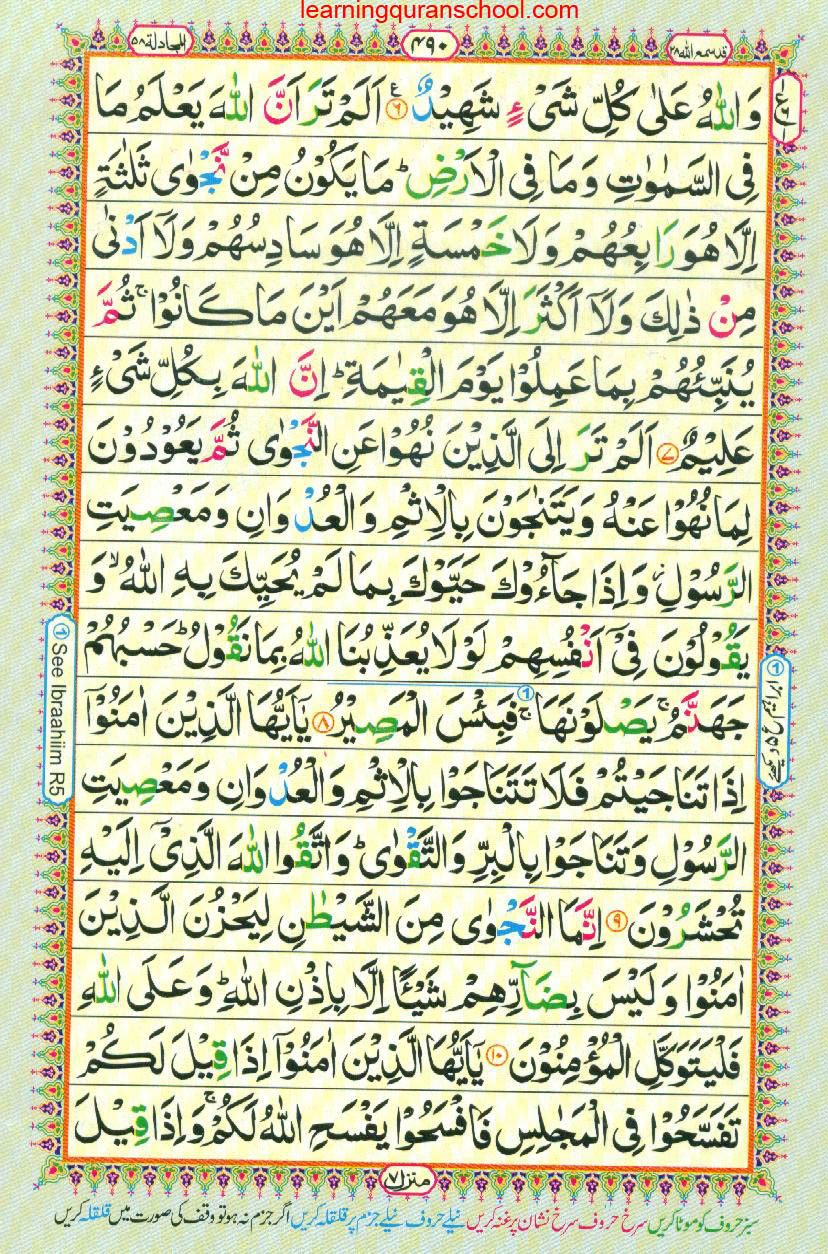 learningquranschool.com
قد سمع الله ٢٨
٤٩٠
المجادلة ٥٨
وَاللّٰهُ عَلٰى كُلِّ شَیْءٍ شَهِیْدٌ ۶ اَلَمْ تَرَ اَنَّ اللّٰهَ یَعْلَمُ مَا
فِی السَّمٰوٰتِ وَ مَا فِی الْاَرْضِ ؕ مَا یَكُوْنُ مِنْ نَّجْوٰى ثَلٰثَةٍ
اِلَّا هُوَ رَابِعُهُمْ وَ لَا خَمْسَةٍ اِلَّا هُوَ سَادِسُهُمْ وَ لَاۤ اَدْنٰى
مِنْ ذٰلِكَ وَ لَاۤ اَكْثَرَ اِلَّا هُوَ مَعَهُمْ اَیْنَ مَا كَانُوْا ۚ ثُمَّ
یُنَبِّئُهُمْ بِمَا عَمِلُوْا یَوْمَ الْقِیٰمَةِ ؕ اِنَّ اللّٰهَ بِكُلِّ شَیْءٍ
عَلِیْمٌ ۷ اَلَمْ تَرَ اِلَى الَّذِیْنَ نُهُوْا عَنِ النَّجْوٰى ثُمَّ یَعُوْدُوْنَ
لِمَا نُهُوْا عَنْهُ وَ یَتَنٰجَوْنَ بِالْاِثْمِ وَ الْعُدْوَانِ وَ مَعْصِیَتِ
الرَّسُوْلِ ؗ وَ اِذَا جَآءُوْكَ حَیَّوْكَ بِمَا لَمْ یُحَیِّكَ بِهِ اللّٰهُ ۙ وَ
یَقُوْلُوْنَ فِیْۤ اَنْفُسِهِمْ لَوْ لَا یُعَذِّبُنَا اللّٰهُ بِمَا نَقُوْلُ ؕ حَسْبُهُمْ
جَهَنَّمُ ۚ یَصْلَوْنَهَا ۚ ① فَبِئْسَ الْمَصِیْرُ ۸ یٰۤاَیُّهَا الَّذِیْنَ اٰمَنُوْۤا
اِذَا تَنَاجَیْتُمْ فَلَا تَتَنَاجَوْا بِالْاِثْمِ وَ الْعُدْوَانِ وَ مَعْصِیَتِ
الرَّسُوْلِ وَ تَنَاجَوْا بِالْبِرِّ وَ التَّقْوٰى ؕ وَ اتَّقُوا اللّٰهَ الَّذِیْۤ اِلَیْهِ
تُحْشَرُوْنَ ۹ اِنَّمَا النَّجْوٰى مِنَ الشَّیْطٰنِ لِیَحْزُنَ الَّذِیْنَ
اٰمَنُوْا وَ لَیْسَ بِضَآرِّهِمْ شَیْـًٔا اِلَّا بِاِذْنِ اللّٰهِ ؕ وَ عَلَى اللّٰهِ
فَلْیَتَوَكَّلِ الْمُؤْمِنُوْنَ ۱۰ یٰۤاَیُّهَا الَّذِیْنَ اٰمَنُوْۤا اِذَا قِیْلَ لَكُمْ
تَفَسَّحُوْا فِی الْمَجٰلِسِ فَافْسَحُوْا یَفْسَحِ اللّٰهُ لَكُمْ ۚ وَ اِذَا قِیْلَ
① See Ibraahiim R5
منزل ۷
سبز حروف کو موٹا کریں سرخ حروف سرخ نشان پر غنہ کریں نیلے حروف نیلے جزم پر قلقلہ کریں اگر جزم نہ ہو تو وقف کی صورت میں قلقلہ کریں